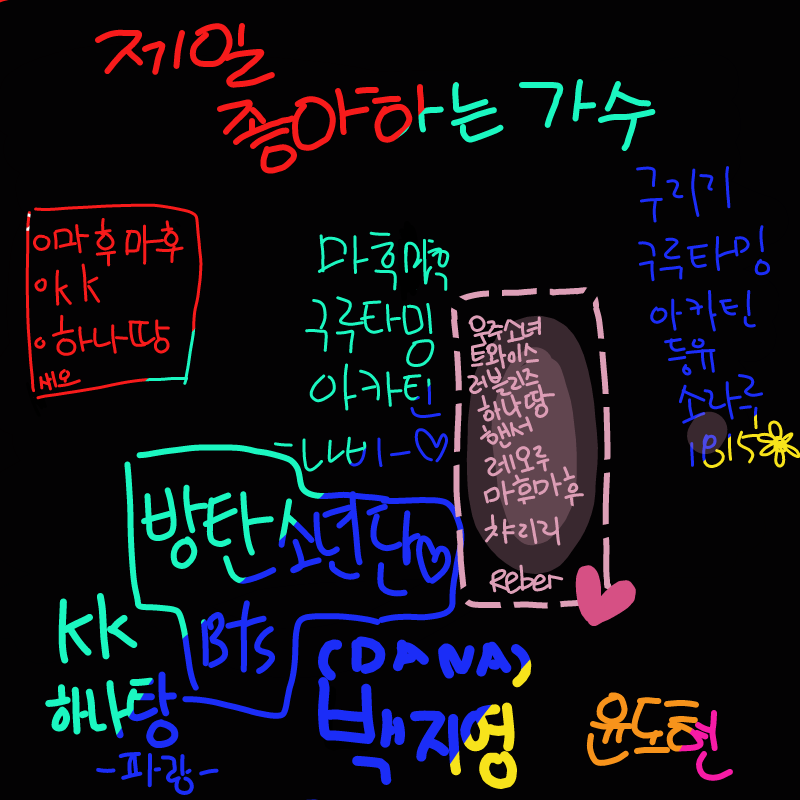 제일
좋아하는 가수
마후마후
kk
하나땅
세오
구루타밍
아카틴
구리기
구루타밍
아카틴
듀유
소라루
우주소녀
트와이스
러블리즈
하나땅
핸서
레오루
마휴마후
챠리리
Reber
방탄소년단♡
Bts
kk
하나탕
-파랑-
(DANA)
백지영
윤도현